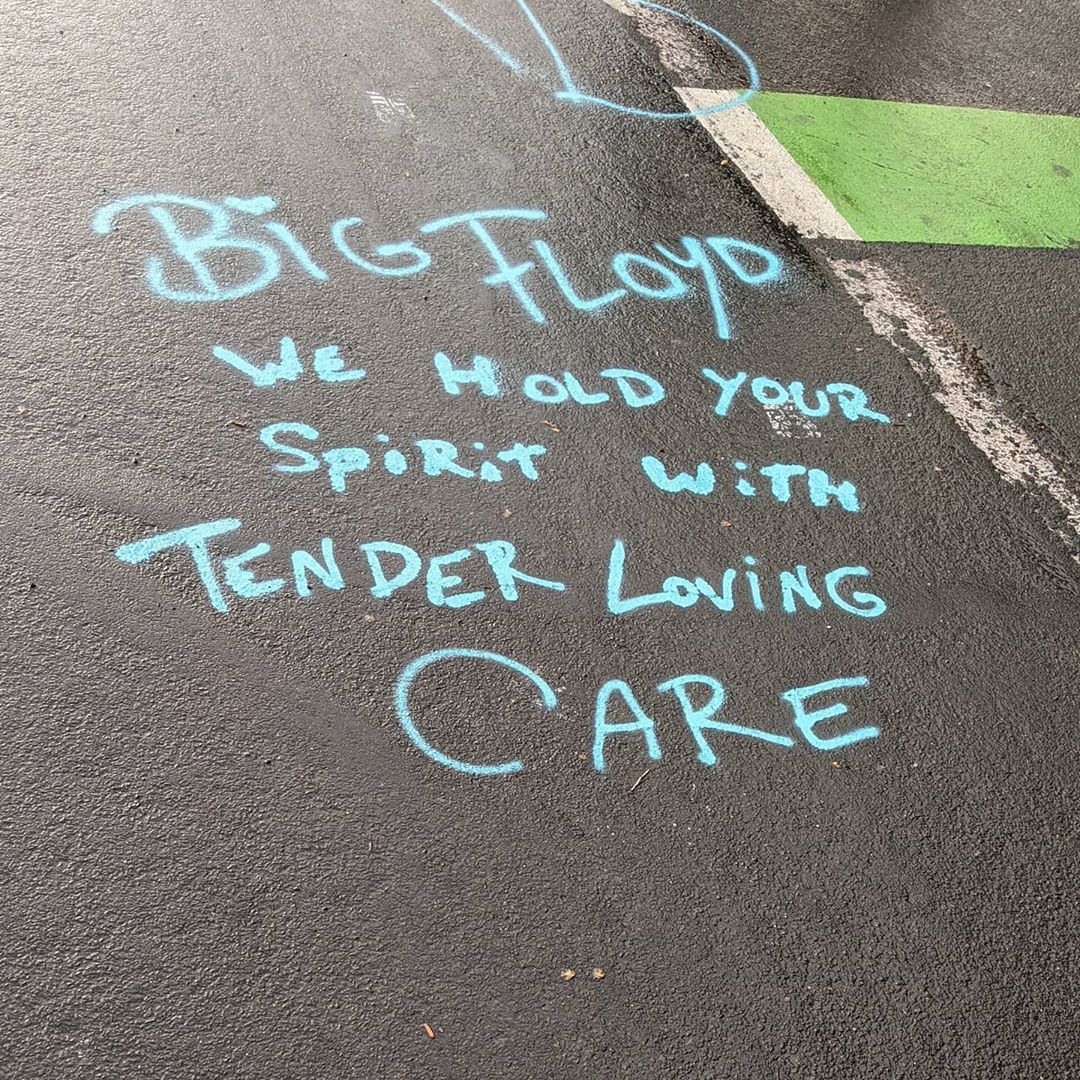 BiG FLOYD
WE HOLD YOUR
SPiRiT WiTH
TENDER LOViNG
CARE